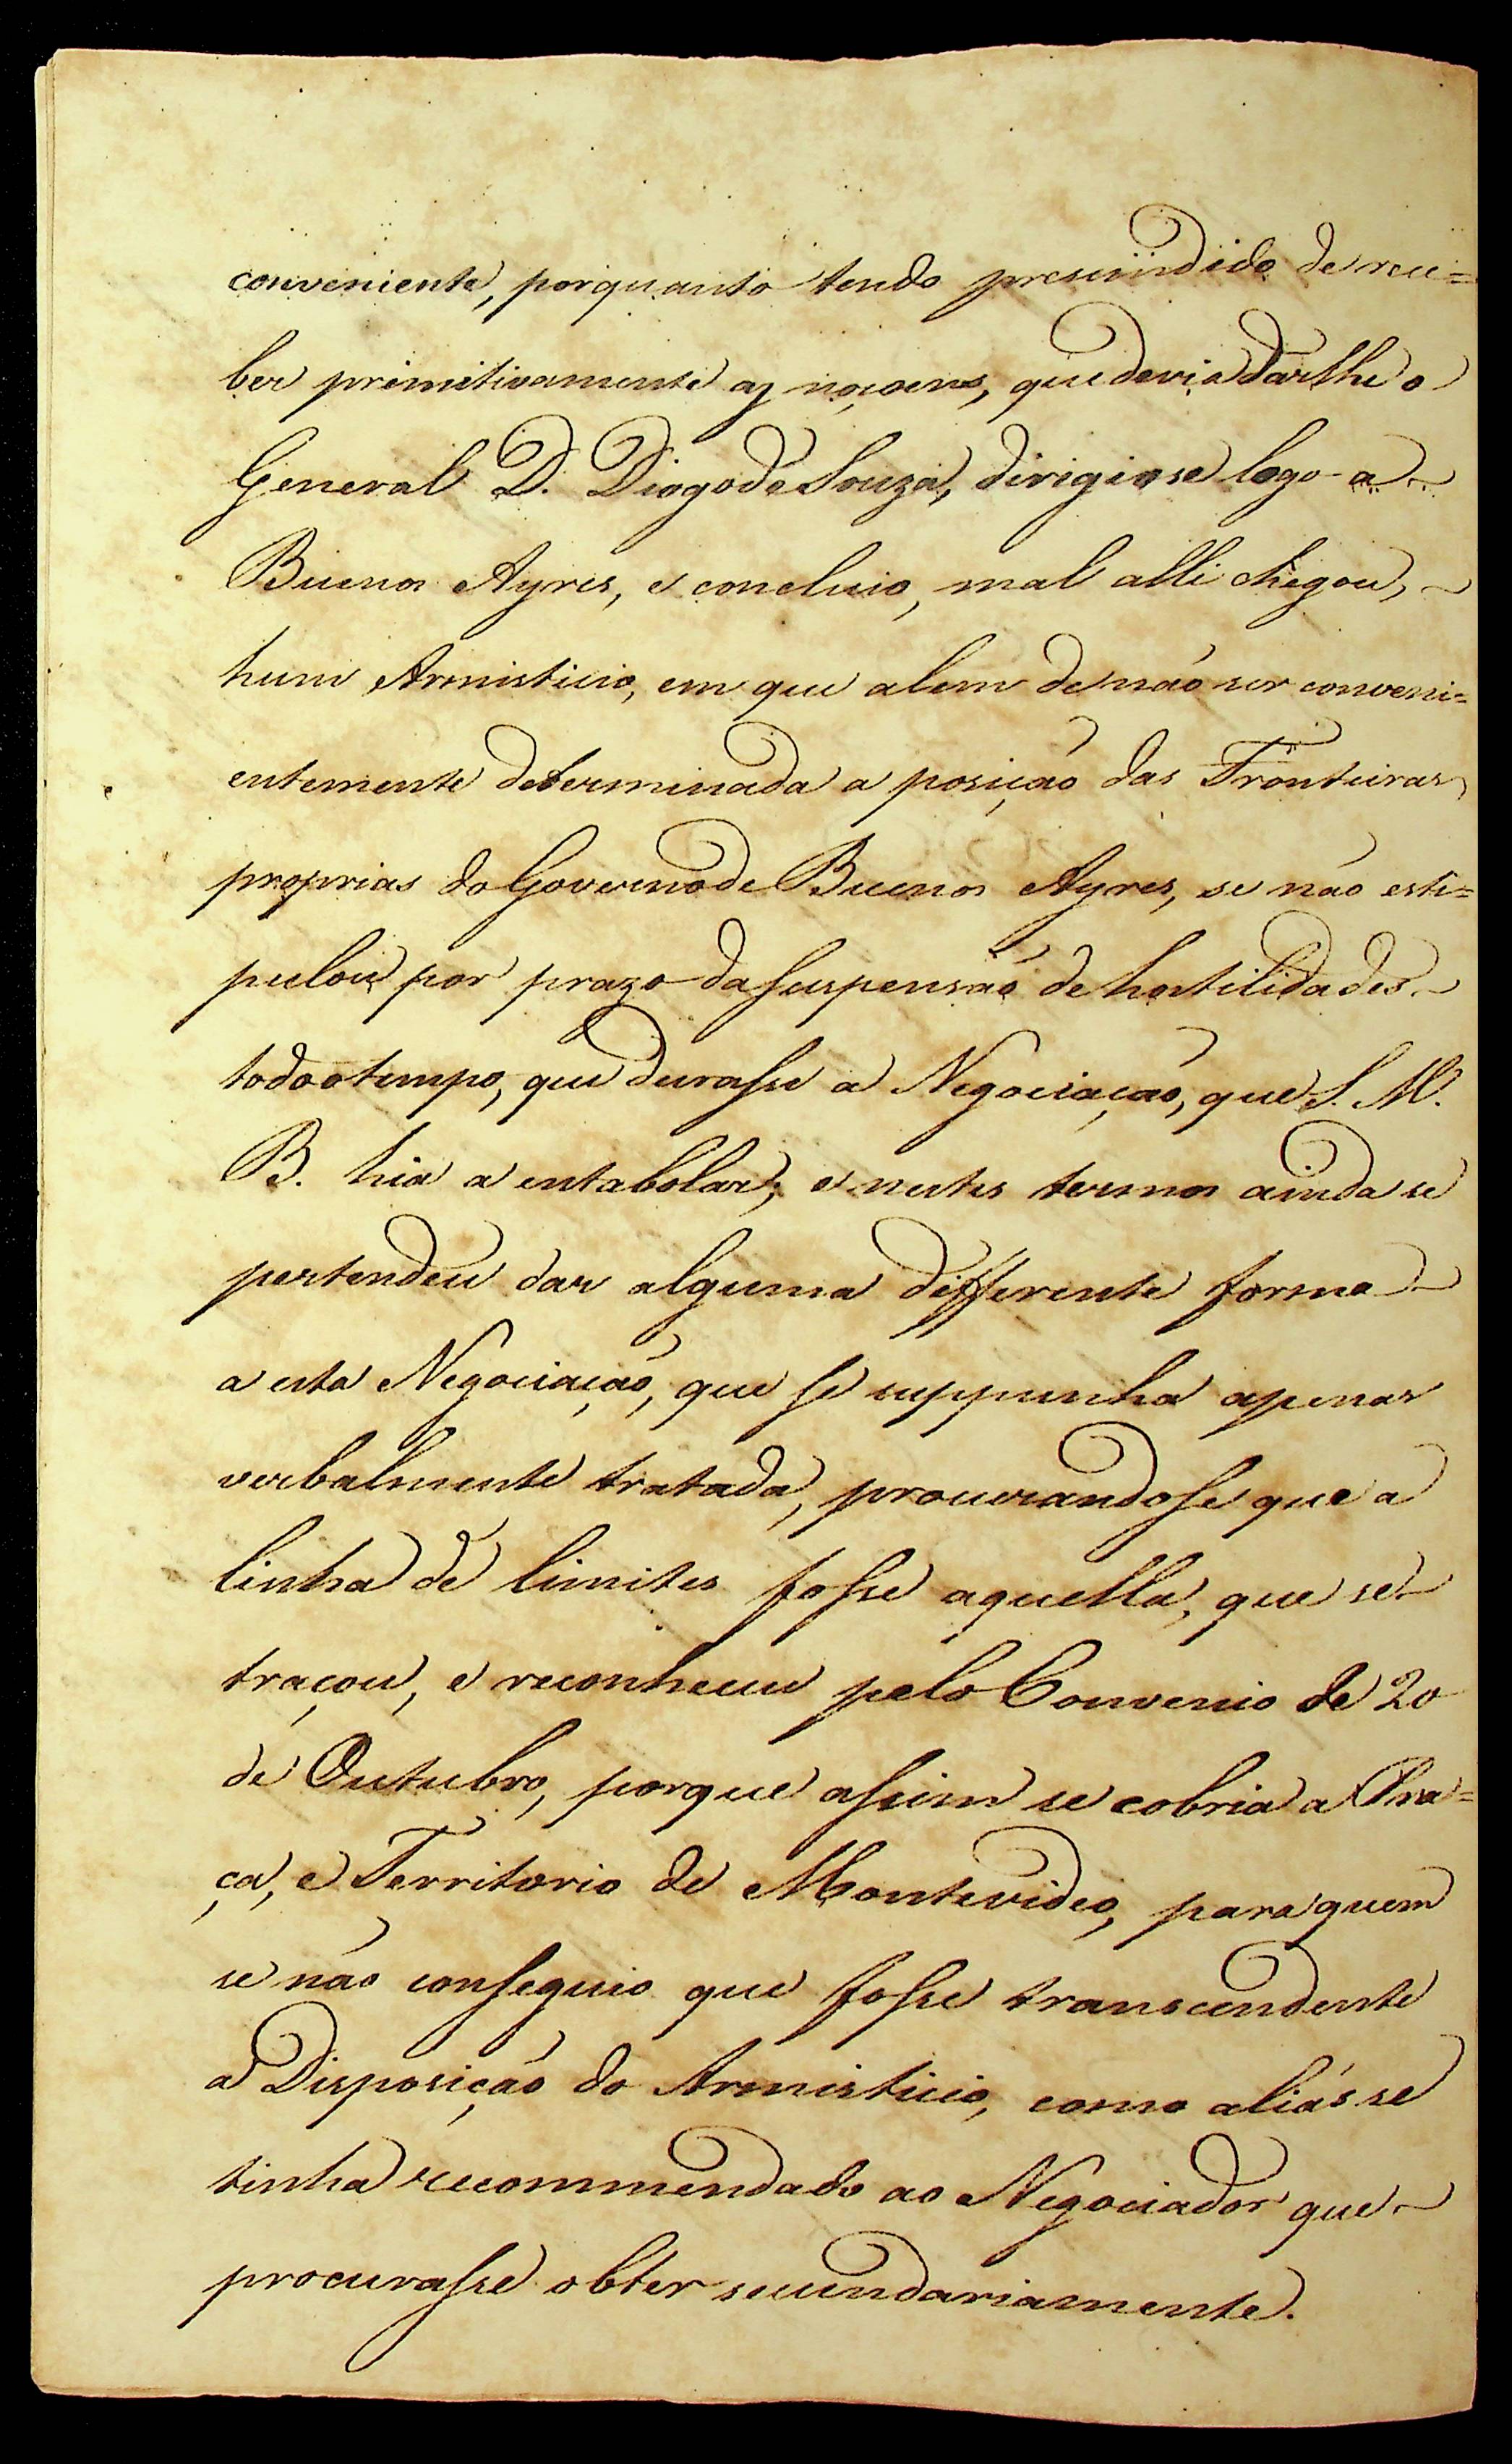 conveniente, porquanto tendo prescindido de rece=
ber primitivamente as noçoens, que devia dar lhe o
General D. Diogo de Souza, dirigio se logo a
Buenos Ayres, e concluio, mal alli chegou,
hum Armisticio, em que alem de não ser conveni=
entemente determinada a posição das Fronteiras
proprias do Governo de Buenos Ayres, se não esti=
pulou por prazo da suspensão de hostilidades
todo o tempo, que durasse a Negociação, que S. M.
B. hia a entabolar; e nestes termos ainda se
pertendeu dar alguma differente forma
a esta Negociação, que se suppunha apenas
verbalmente tratada, procurandose que a
linha de limites fosse aquella, que se
traçou, e reconheceu pelo Convenio de 20
de Outubro, porque assim se cobria a Pra=
ça, e Territorio de Montevideo, para quem
se não conseguio que fosse transcendente
a Disposição do Armisticio, como aliás se
tinha recommendado ao Negociador que
procurasse obter secundariamente.